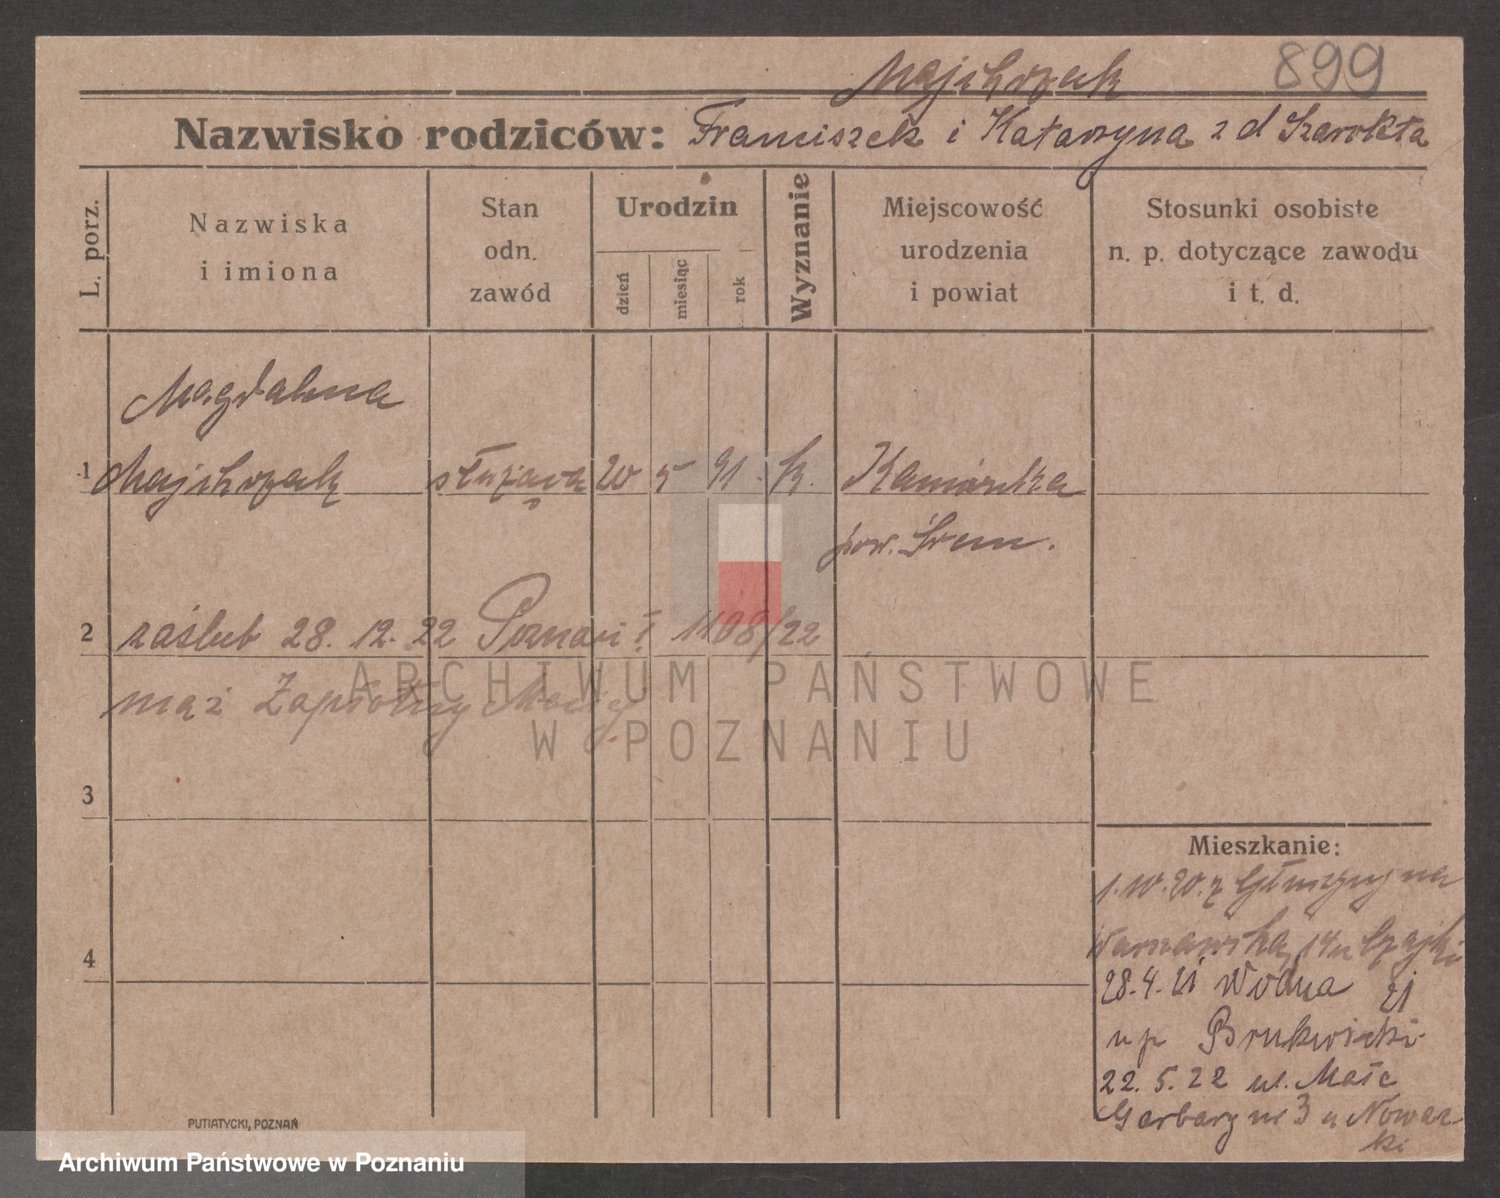 Majchrzak 899
Nazwisko rodziców: Franciszek i Katarzyna z d
L. porz.
Nazwiska
i imiona
Stan
odn.
zawód
Urodzin
dzień
miesiąc
rok
Wyznanie
Miejscowość
urodzenia
i powiat
Stosunki osobiste
n. p. dotyczące zawodu
i t. d.
Magdalena
1 Majchrzak służąca 20 5 91. k. Kamionka
pow. Śrem.
2 zaślub 28. 12. 22 Poznań I 1108/22
mąż Zapłotny Maciej
ARCHIWUM PAŃSTWOWE
W POZNANIU
3
4
Mieszkanie:
1.10.20. z Głuszyny na
Warszawską 14 u Czajki
28.4.21 Wodna 21
u p
22. 5. 22 ul. Małe
Garbary nr 3 u Nowac-
ki
PUTIATYCKI, POZNAŃ
Archiwum Państwowe w Poznaniu